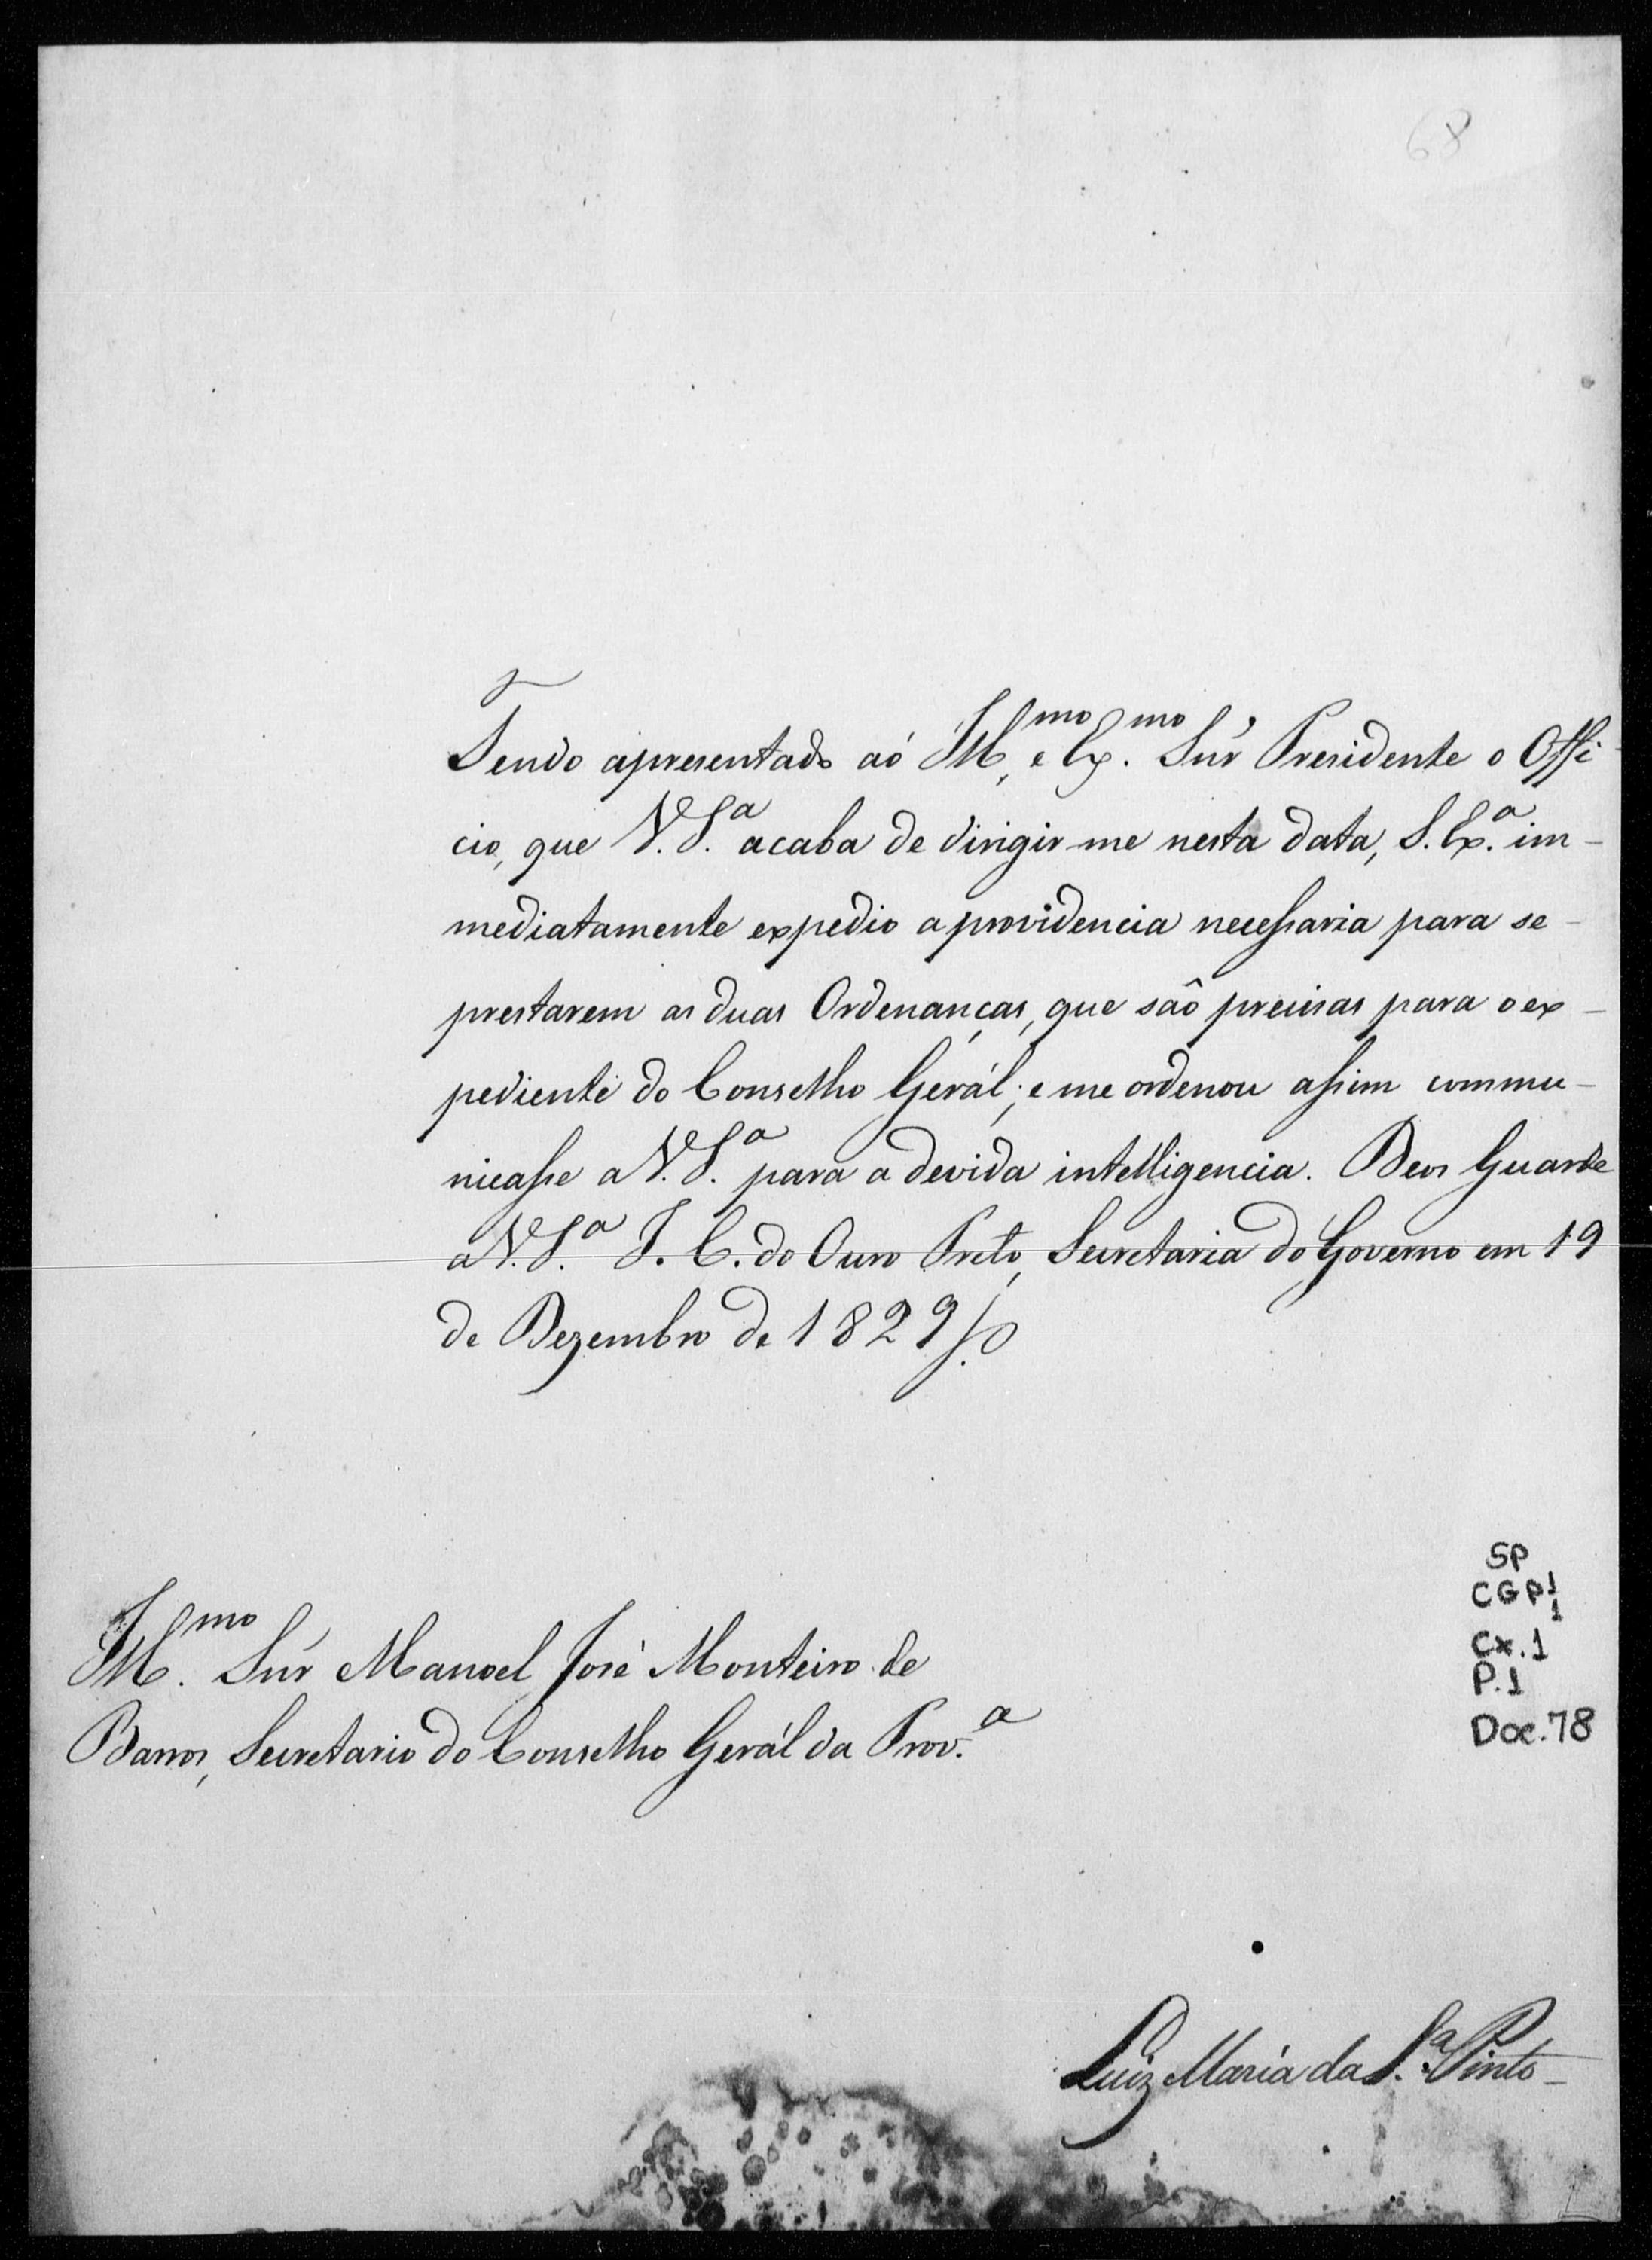 68
Sendo apresentado aó Ill.mo e Ex.mo Sñr Presidente o Offi
cio, que V. S.a acaba de dirigir-me nesta data, S. Ex.a im-
mediatamente expedio a providencia necessaria para se-
prestarem as duas Ordenanças, que são precisas para o ex-
pediente do Conselho Gerál; e me ordenou assim commu-
nicasse a V. S.a para a devida intelligencia. Deos Guarde
a V. S.a I. C. do Ouro Preto, Secretaria do Governo em 19
de Dezembro de 1829
Ill.mo Sñr Manoel José Monteiro de
Barros, Secretario do Conselho Gerál da Prov.a
SP
CGP1
1
Cx. 1
P. 1
Doc. 78
Luiz Maria da S.a Pinto